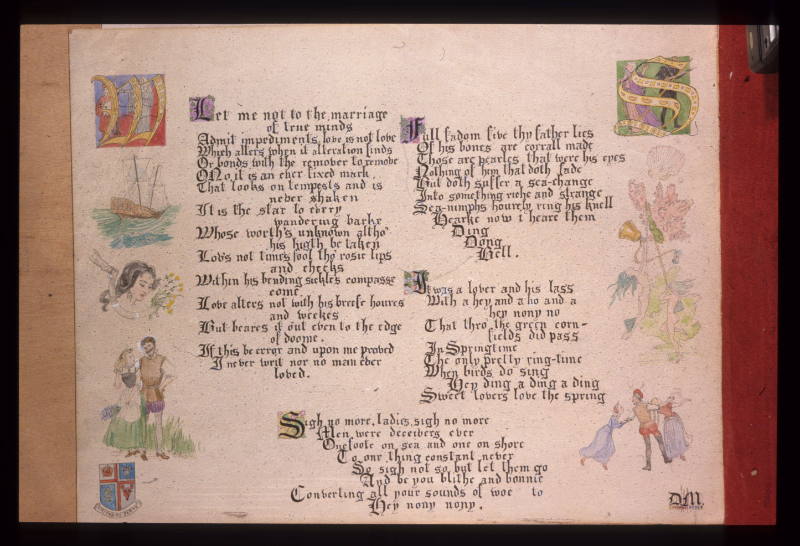 Let me not to the marriage
of true minds
Admit impediments, love is not love
Which alters when it alteration finds
Or bends with the remover to remove
O No, it is an ever fixed mark,
That looks on tempests and is
never shaken
It is the star to every
wandering barke
Whose worth's unknown altho'
his higth be taken
Lov's not time's fool tho' rosie lips
and cheeks
Within his bending sickle's compasse
come,
Love alters not with his breefe houres
and weekes
But beares it out even to the edge
of doome.
If this be error and upon me proved
I never writ nor no man ever
loved.
Full fadom five thy father lies
Of his bones are corrall made
Those are pearles that were his eyes
Nothing of him that doth fade
But doth suffer a sea-change
Into something riche and strange
Sea-nimphs hourely ring his knell
Hearke now i heare them
Ding
Dong
Bell.
It was a lover and his lass
With a hey and a ho and a
hey nony no
That thro' the green corn-
fields did pass
In Springtime
The only pretty ring-time
When birds do sing
Hey ding a ding a ding
Sweet lovers love the spring
Sigh no more, ladies, sigh no more
Men were deceivers ever
One foote on sea and one on shore
To one thing constant never
So sigh not so but let them go
And be you blithe and bonnie
Converting all your sounds of woe to
Hey nony nony.
D.M.